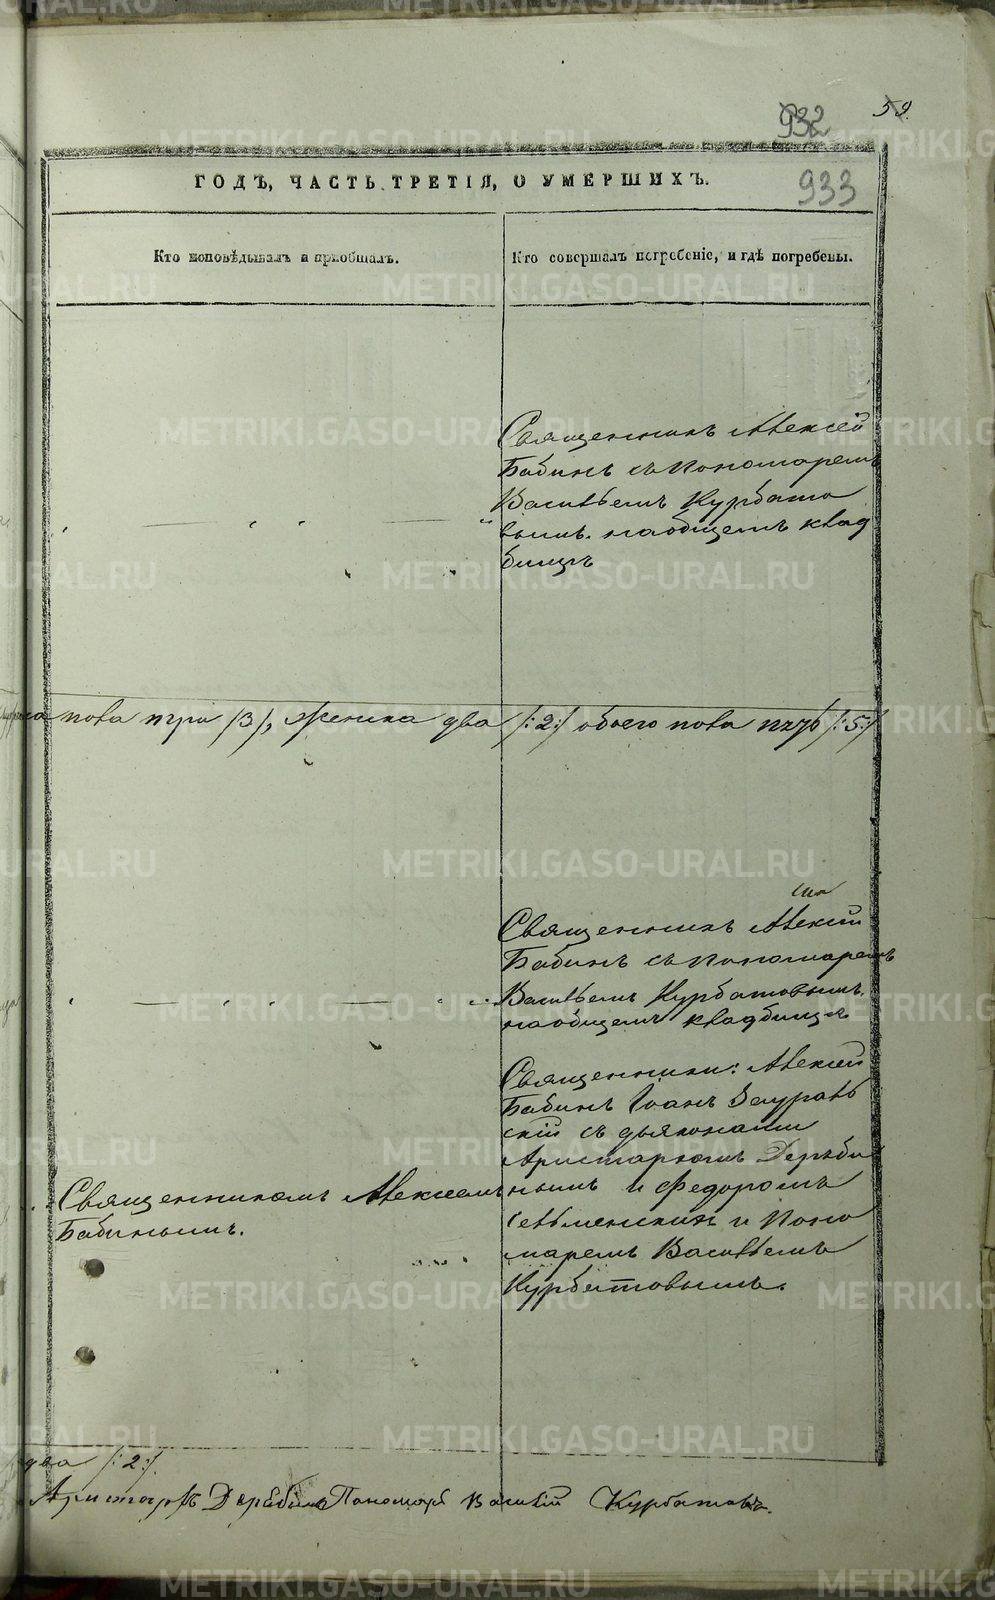 932
59.
933
ГОДЪ, ЧАСТЬ ТРЕТІЯ, О УМЕРШИХЪ.
Кто исповѣдывалъ и пріобщалъ.
Кто совершалъ погребеніе, и гдѣ погребены.
Священникъ Алексѣй
Бабинъ съ Пономаремъ
Васильемъ Курбато
вымъ. на общемъ клад
бищѣ
пола три /3/, Женска два /:2:/ обоего пола пять /:5:/
Священникъ Алексѣй
Бабинъ съ Пономаремъ
Васильемъ Курбатовымъ.
на общемъ кладбищѣ
Священники: Алексѣй
Бабинъ Іоанъ Заураль
скій съ дьяконами
Аристархомъ Деряби
нымъ и Федоромъ
и Поно
маремъ Васильемъ
Курбатовымъ.
Священникомъ Алексѣемъ
Бабинымъ.
два /:2:/.
Аристархъ Дерябинъ Пономарь Василій Курбатовъ.
METRIKI.GASO-URAL.RU